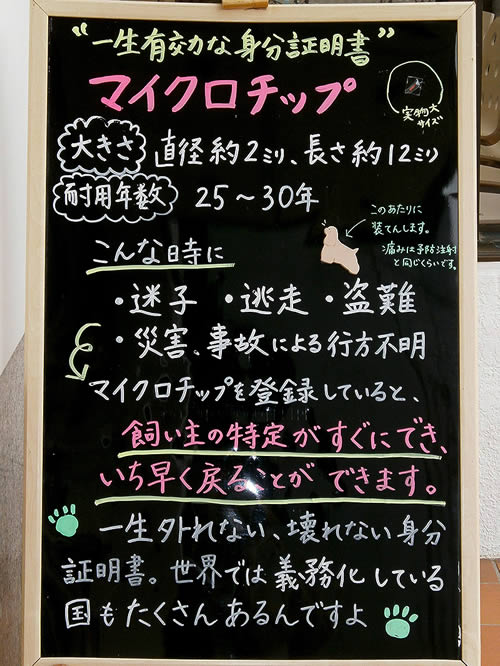 “一生有効な身分証明書”
マイクロチップ
実物大
サイズ
大きさ 直径約2ミリ、長さ約12ミリ
耐用年数 25～30年
このあたりに
装てんします。
痛みは予防注射
と同じくらいです。
こんな時に
・迷子 ・逃走 ・盗難
・災害、事故による行方不明
マイクロチップを登録していると、
飼い主の特定がすぐにでき、
いち早く戻ることができます。
一生外れない、壊れない身分
証明書。世界では義務化している
国もたくさんあるんですよ